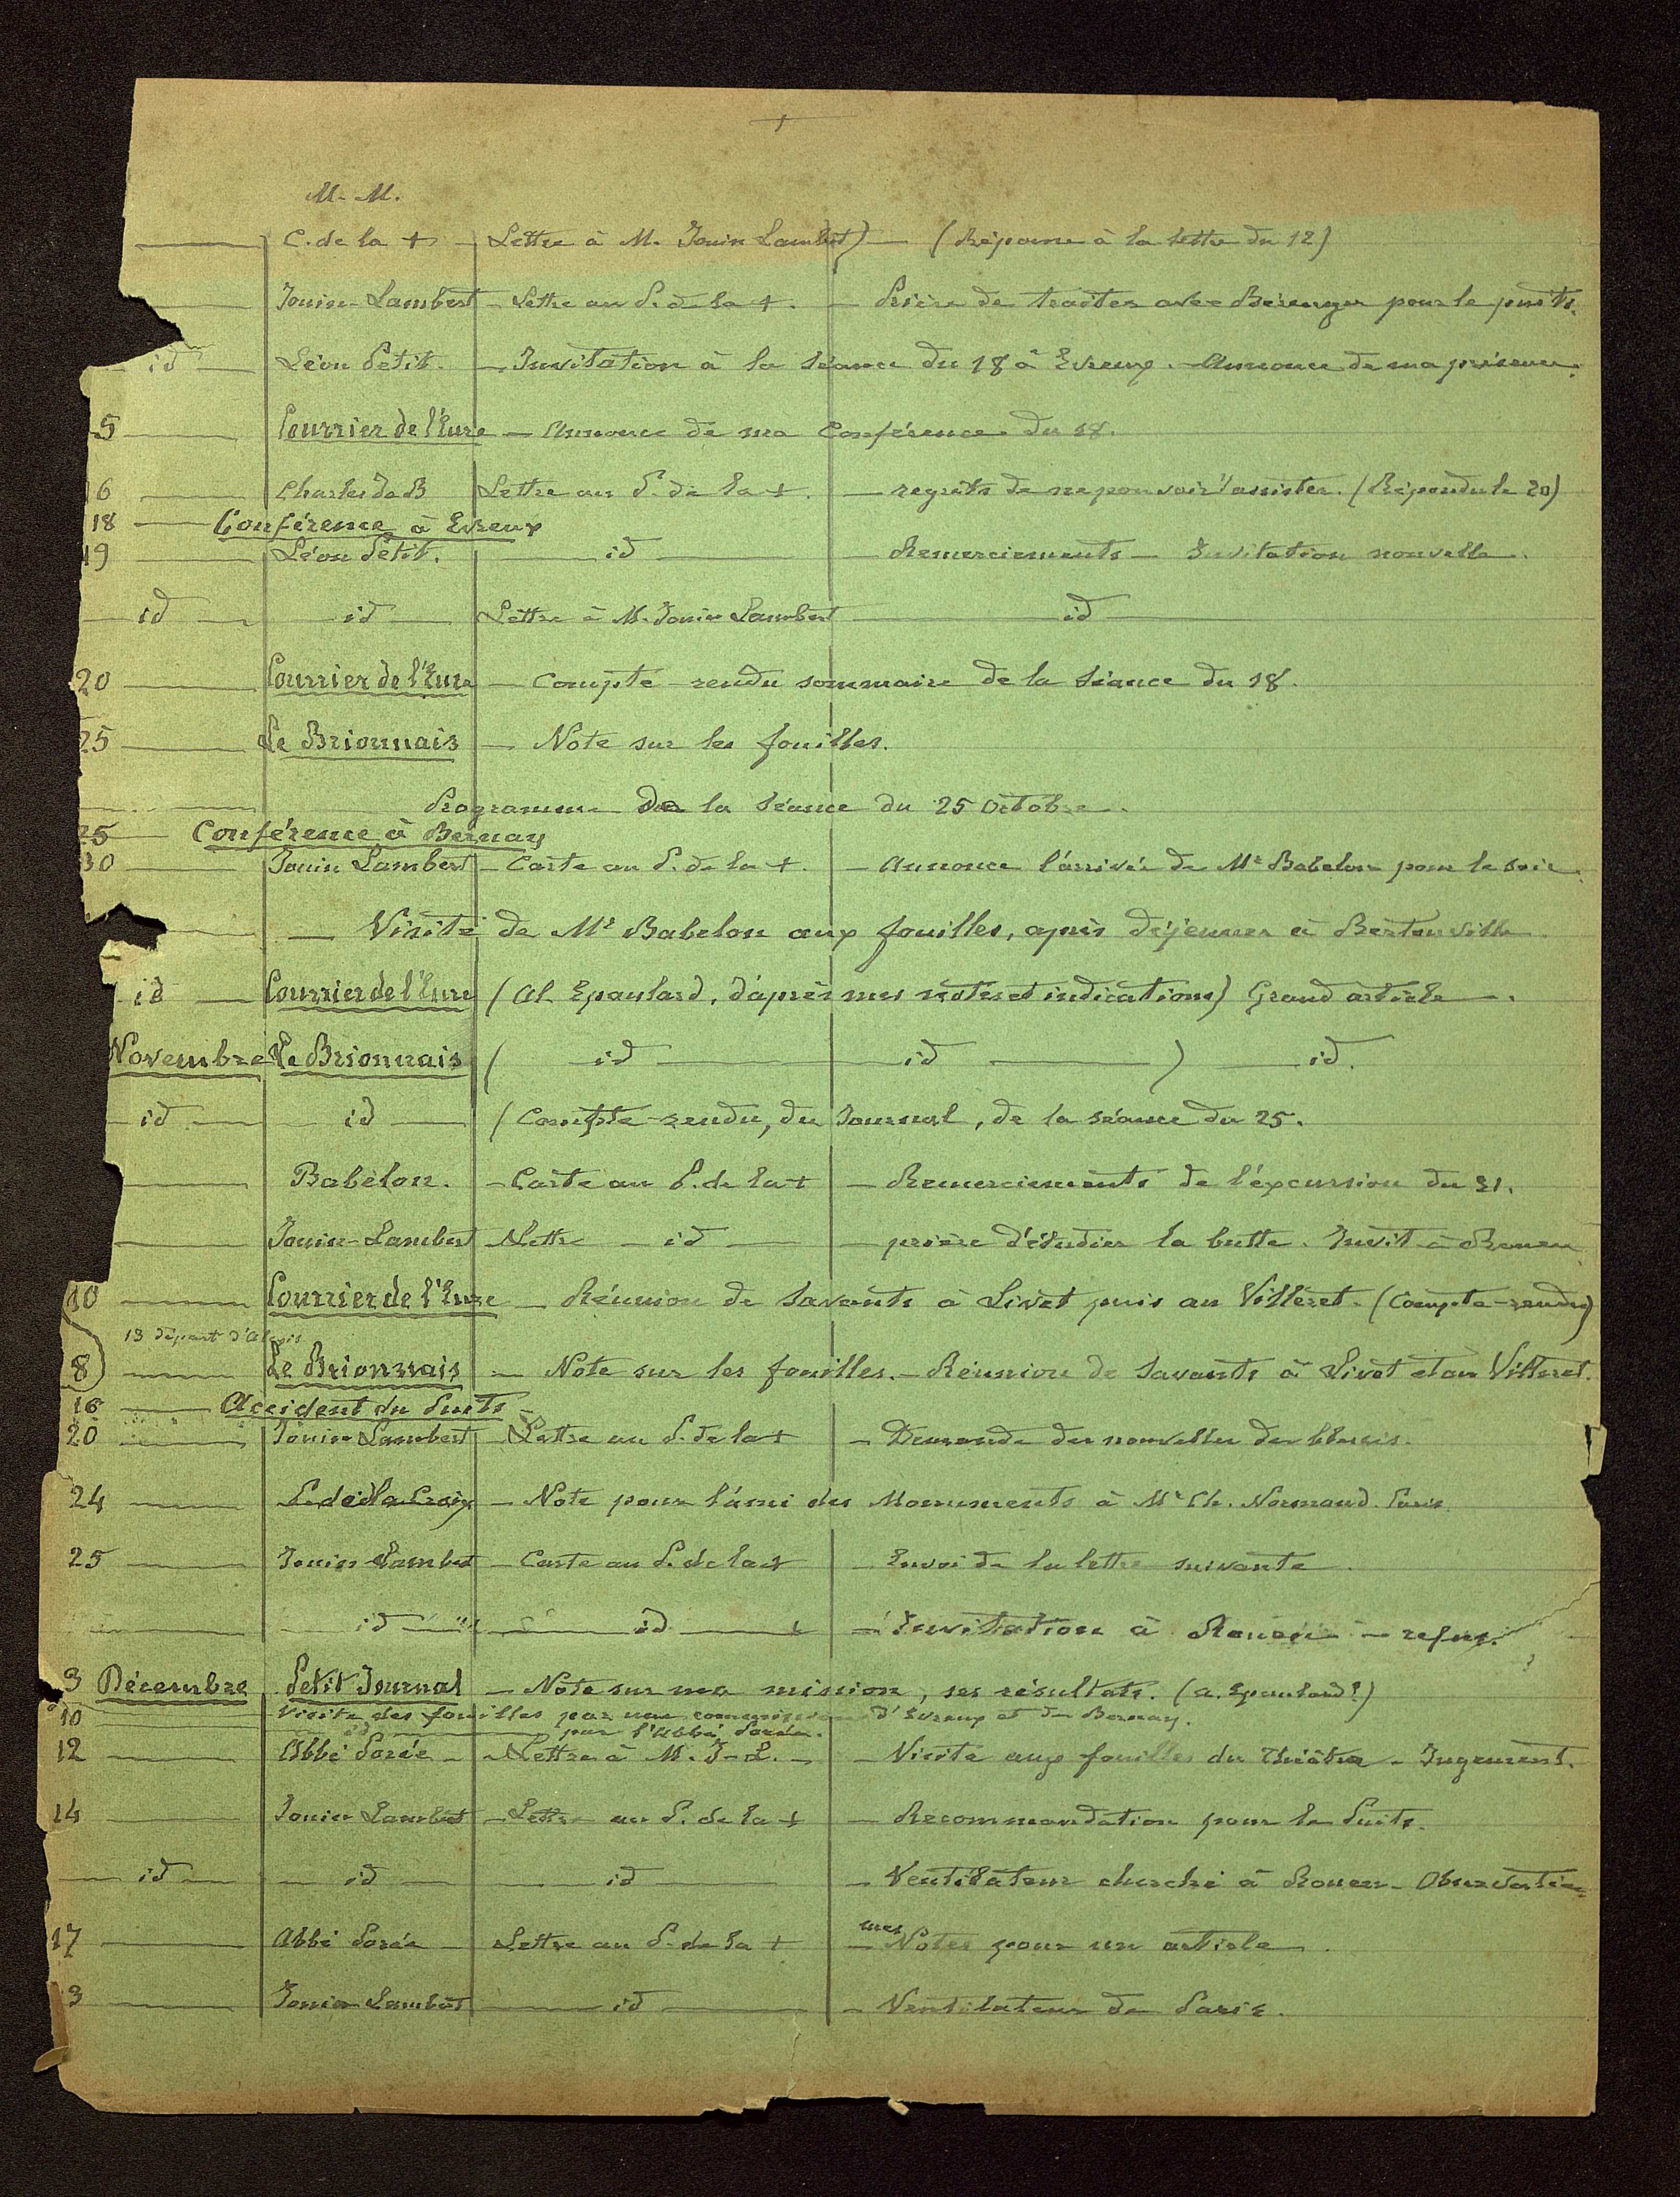 +
M. M.
— C. de la + — Lettre à M. Jouin Lambert) — (Réponse à la lettre du 12)
— Jouin-Lambert — Lettre au P. de la +. — Prière de traiter avec Bérenger pour le puits.
— id — Léon Petit. — Invitation à la Séance du 18 à Evreux. — Annonce de ma présence.
5 — Courrier de l'Eure — Annonce de ma Conférence du 18.
6 — Charles de B Lettre au P. de la +. — regrets de ne pouvoir assister. (Répondu le 20)
18 — Conférence à Evreux
19 Léon Petit. — id — Remerciements — Invitation nouvelle.
— id — id — Lettre à M. Jouin Lambert — id —
20 — Courrier de l'Eure — Compte-rendu sommaire de la Séance du 18.
25 — Le Brionnais — Note sur les fouilles.
— Programme de la Séance du 25 Octobre.
25 — Conférence à Bernay
30 — Jouin Lambert — Carte au P. de la +. — Annonce l'arrivée de Mr Babelon pour le soir.
— Visite de Mr Babelon aux fouilles, après déjeuner à Bertouville
id — Courrier de l'Eure (Al. Epaulard, d'après mes notes et indications) Grand article.
Novembre Le Brionnais ( id — id — ) — id.
— id — id — (Compte-rendu, du Journal, de la séance du 25.
— Babelon. — Carte au P. de la + — Remerciements de l'excursion du 31.
— Jouin-Lambert — Lettre — id — prière d'étudier la butte. Invit. à Rouen
10 — Courrier de l'Eure — Réunion de Savants à Livet puis au Villeret. (Compte-rendu)
13 départ d'Alexis
8 — Le Brionnais — Note sur les fouilles. — Réunion de Savants à Livet et au Villeret.
16 — Accident du Puits —
20 — Jouin Lambert Lettre au P. de la + — Demande des nouvelles des blessés.
24 — P. de la Croix — Note pour l'ami des Monuments à Mr Ch. Normand. Paris
25 — Jouin Lambert — Carte au P. de la + — Envoi de la lettre suivante.
— id — id — + — Invitation à Rouen — refus.
3 Décembre Petit Journal — Note sur ma mission, ses résultats. (A. Epaulard?)
10 Visite des fouilles par une commission d'Evreux et de Bernay.
— id — par l'Abbé Porée.
12 — Abbé Porée — Lettre à M. J-L. — Visite aux fouilles du Théâtre — Jugement.
14 — Jouin Lambert — Lettre au P. de la + — Recommandation pour le Puits.
— id — id — id — Ventilateur cherché à Rouen — Observation
17 — Abbé Porée — Lettre au P. de la + — mes Notes pour un article.
3 — Jouin Lambert — id — Ventilateur de Paris.